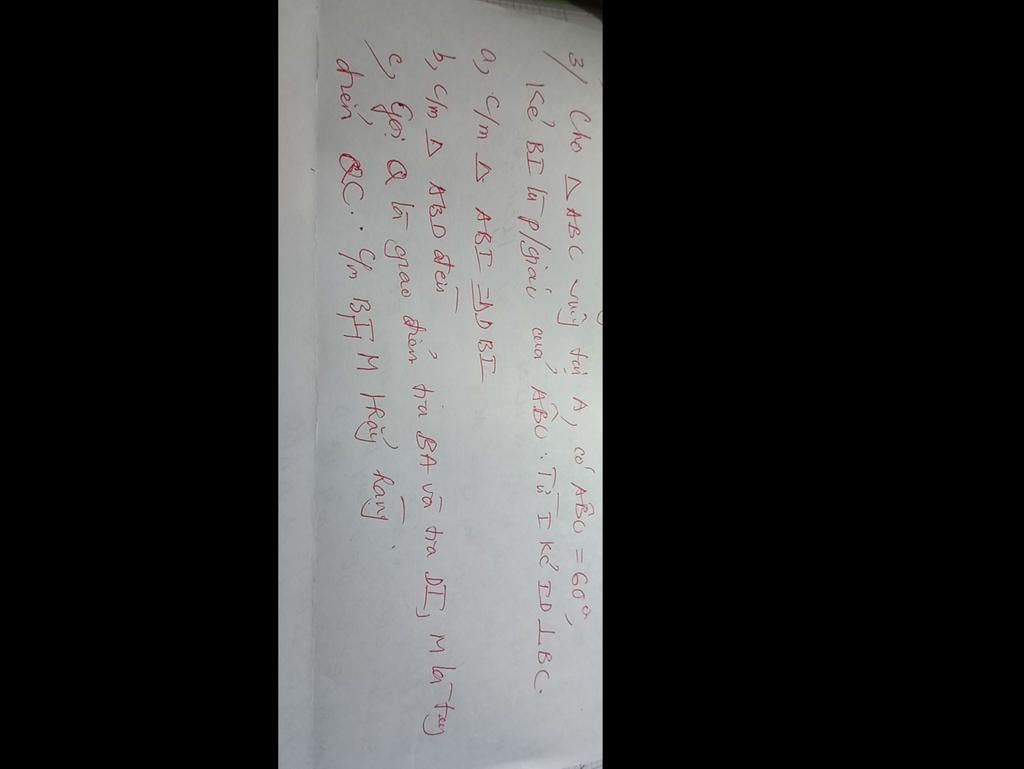 3/ Cho Δ ABC vuông tại A, có ABC = 60°,
Kẻ BI là p/giác của ABC. Từ I kẻ ID ⊥ BC.
a, c/m Δ ABI = Δ DBI
b, c/m Δ ABD đều
c, Gọi Q là giao điểm tia BA và tia DI, M là trung
điểm QC. c/m B, I, M thẳng hàng.